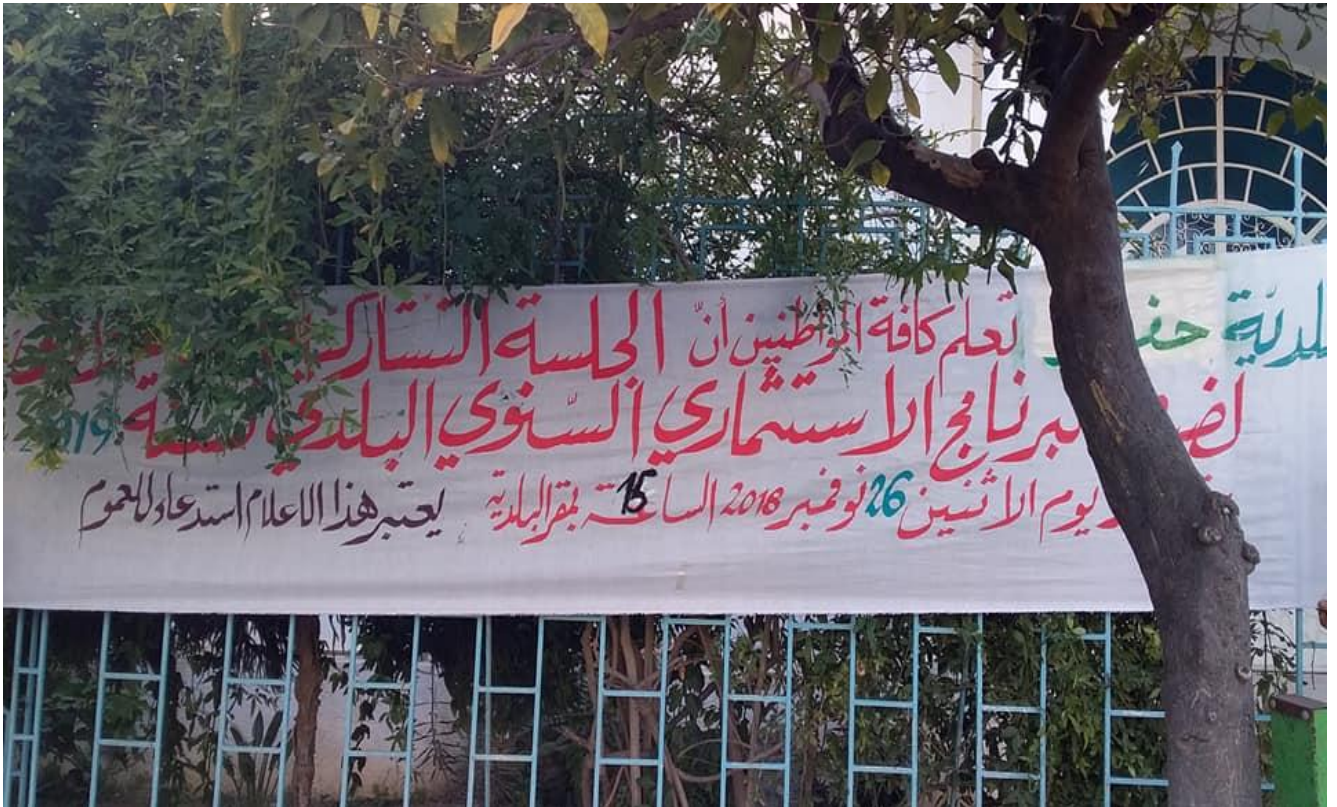 تعلم كافة المواطنين أنّ الجلسة التشاركية
البرنامج الاستثماري السّنوي البلدي لسنة 2019
يوم الاثنين 26 نوفمبر 2018 الساعة 15 بمقر البلدية يعتبر هذا الاعلام استدعاء للعموم